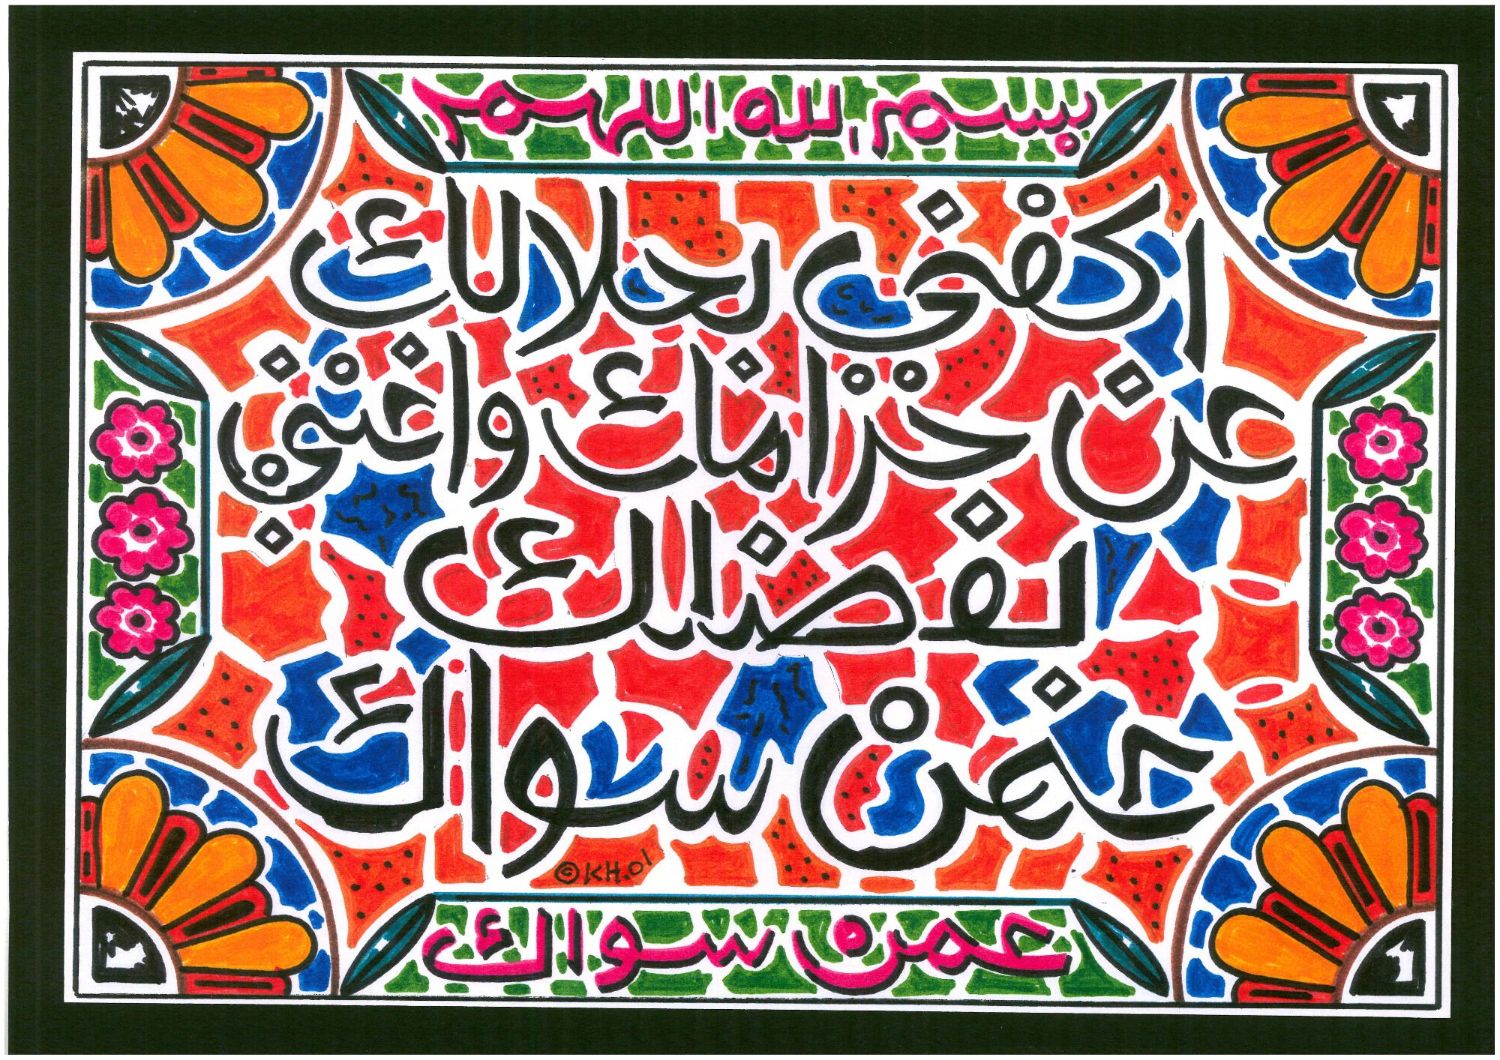 بسم الله اللهم
اكفنى بحلالك
عن حرامك واغننى
بفضلك
عمن سواك
©KH.01
عمن سواك